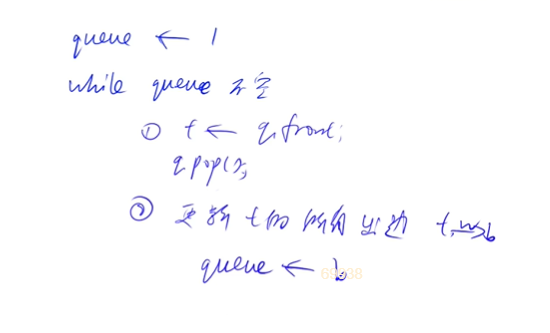 queue ← 1
while queue 不空
① t ← q.front;
q.pop();
② 更新 t的所有出边 t —w→ b
queue ← b
69938